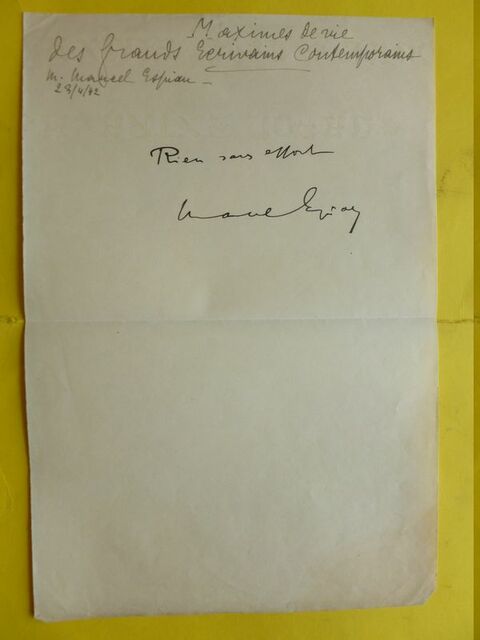 Maximes de vie
des Grands Ecrivains Contemporains
M. Marcel Espiau –
23/4/42
Rien sans effort
Marcel Espiau